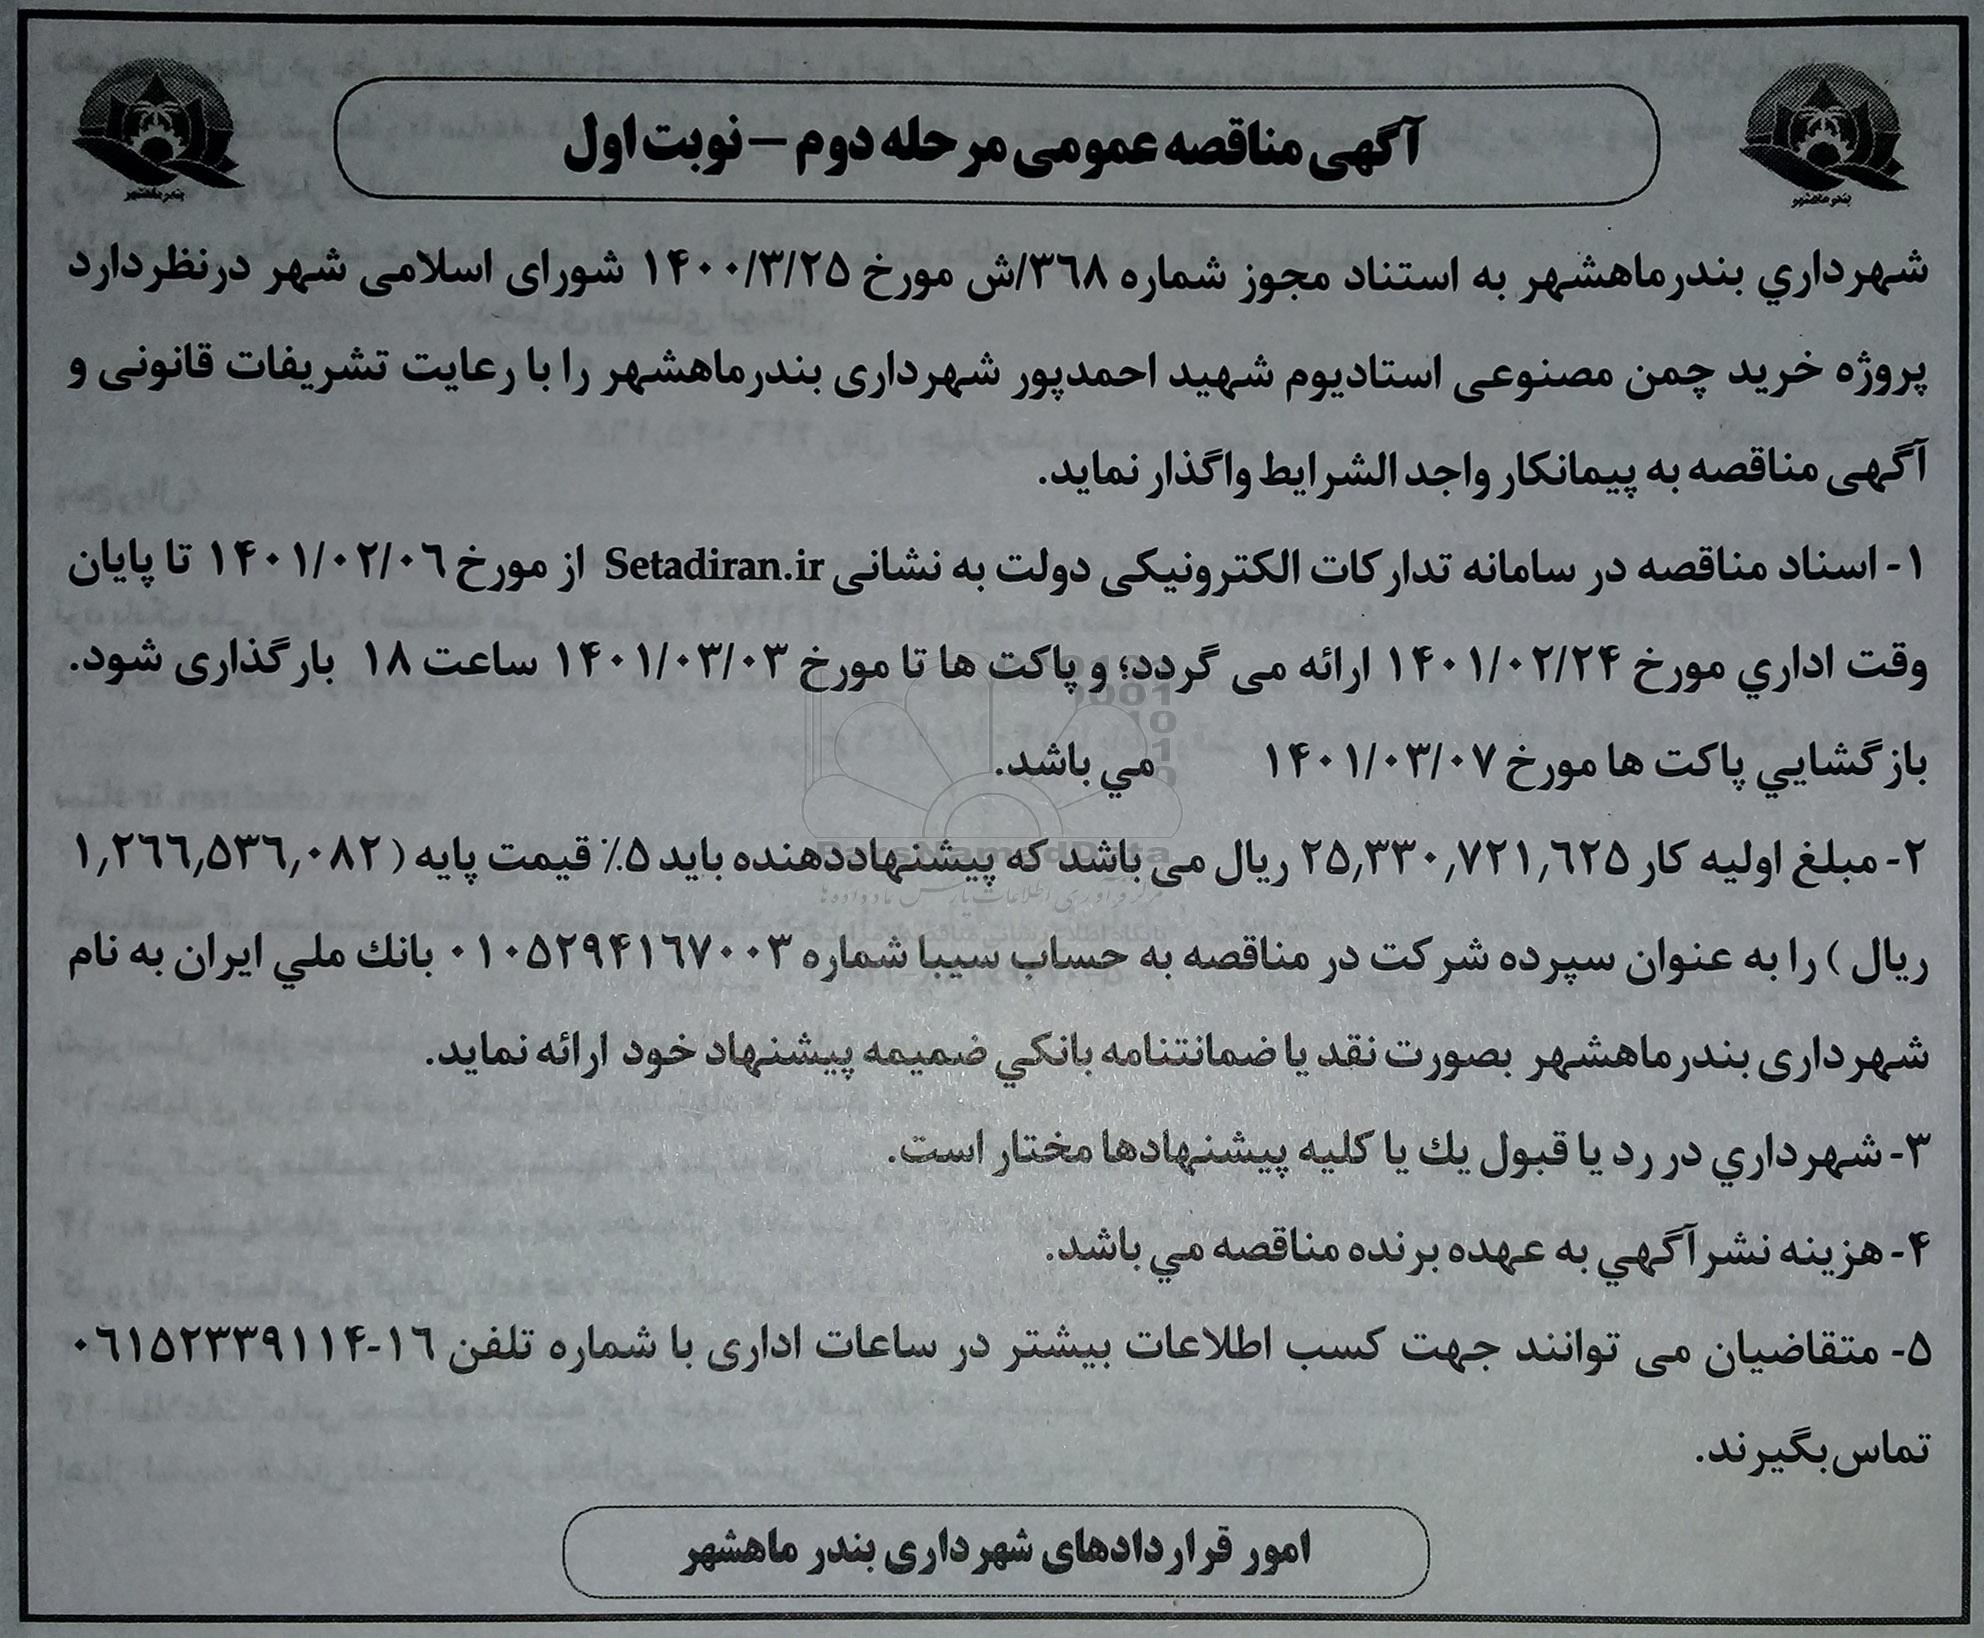 آگهی مناقصه عمومی مرحله دوم – نوبت اول
بندرماهشهر
بندرماهشهر
شهرداري بندرماهشهر به استناد مجوز شماره ۳۶۸/ش مورخ ۱۴۰۰/۳/۲۵ شورای اسلامی شهر درنظردارد
پروژه خرید چمن مصنوعی استادیوم شهید احمدپور شهرداری بندرماهشهر را با رعایت تشریفات قانونی و
آگهی مناقصه به پیمانکار واجد الشرایط واگذار نماید.
۱- اسناد مناقصه در سامانه تدارکات الکترونیکی دولت به نشانی Setadiran.ir از مورخ ۱۴۰۱/۰۲/۰۶ تا پایان
وقت اداري مورخ ۱۴۰۱/۰۲/۲۴ ارائه می گردد؛ و پاکت ها تا مورخ ۱۴۰۱/۰۳/۰۳ ساعت ۱۸ بارگذاری شود.
بازگشايي پاکت ها مورخ ۱۴۰۱/۰۳/۰۷ مي باشد.
۲- مبلغ اولیه کار ۲۵,۳۳۰,۷۲۱,۶۲۵ ریال می باشد که پیشنهاددهنده باید ۵٪ قیمت پایه ( ۱,۲۶۶,۵۳۶,۰۸۲
ریال ) را به عنوان سپرده شرکت در مناقصه به حساب سیبا شماره ۰۱۰۵۲۹۴۱۶۷۰۰۳ بانك ملي ایران به نام
شهرداری بندرماهشهر بصورت نقد یا ضمانتنامه بانكي ضمیمه پیشنهاد خود ارائه نماید.
۳- شهرداري در رد یا قبول يك یا کلیه پیشنهادها مختار است.
۴- هزینه نشر آگهي به عهده برنده مناقصه مي باشد.
۵- متقاضیان می توانند جهت کسب اطلاعات بیشتر در ساعات اداری با شماره تلفن ۱۶-۰۶۱۵۲۳۳۹۱۱۴
تماس بگیرند.
امور قراردادهای شهرداری بندر ماهشهر
ParsNamadData
مرکز فرآوری اطلاعات پارس نماد داده ها